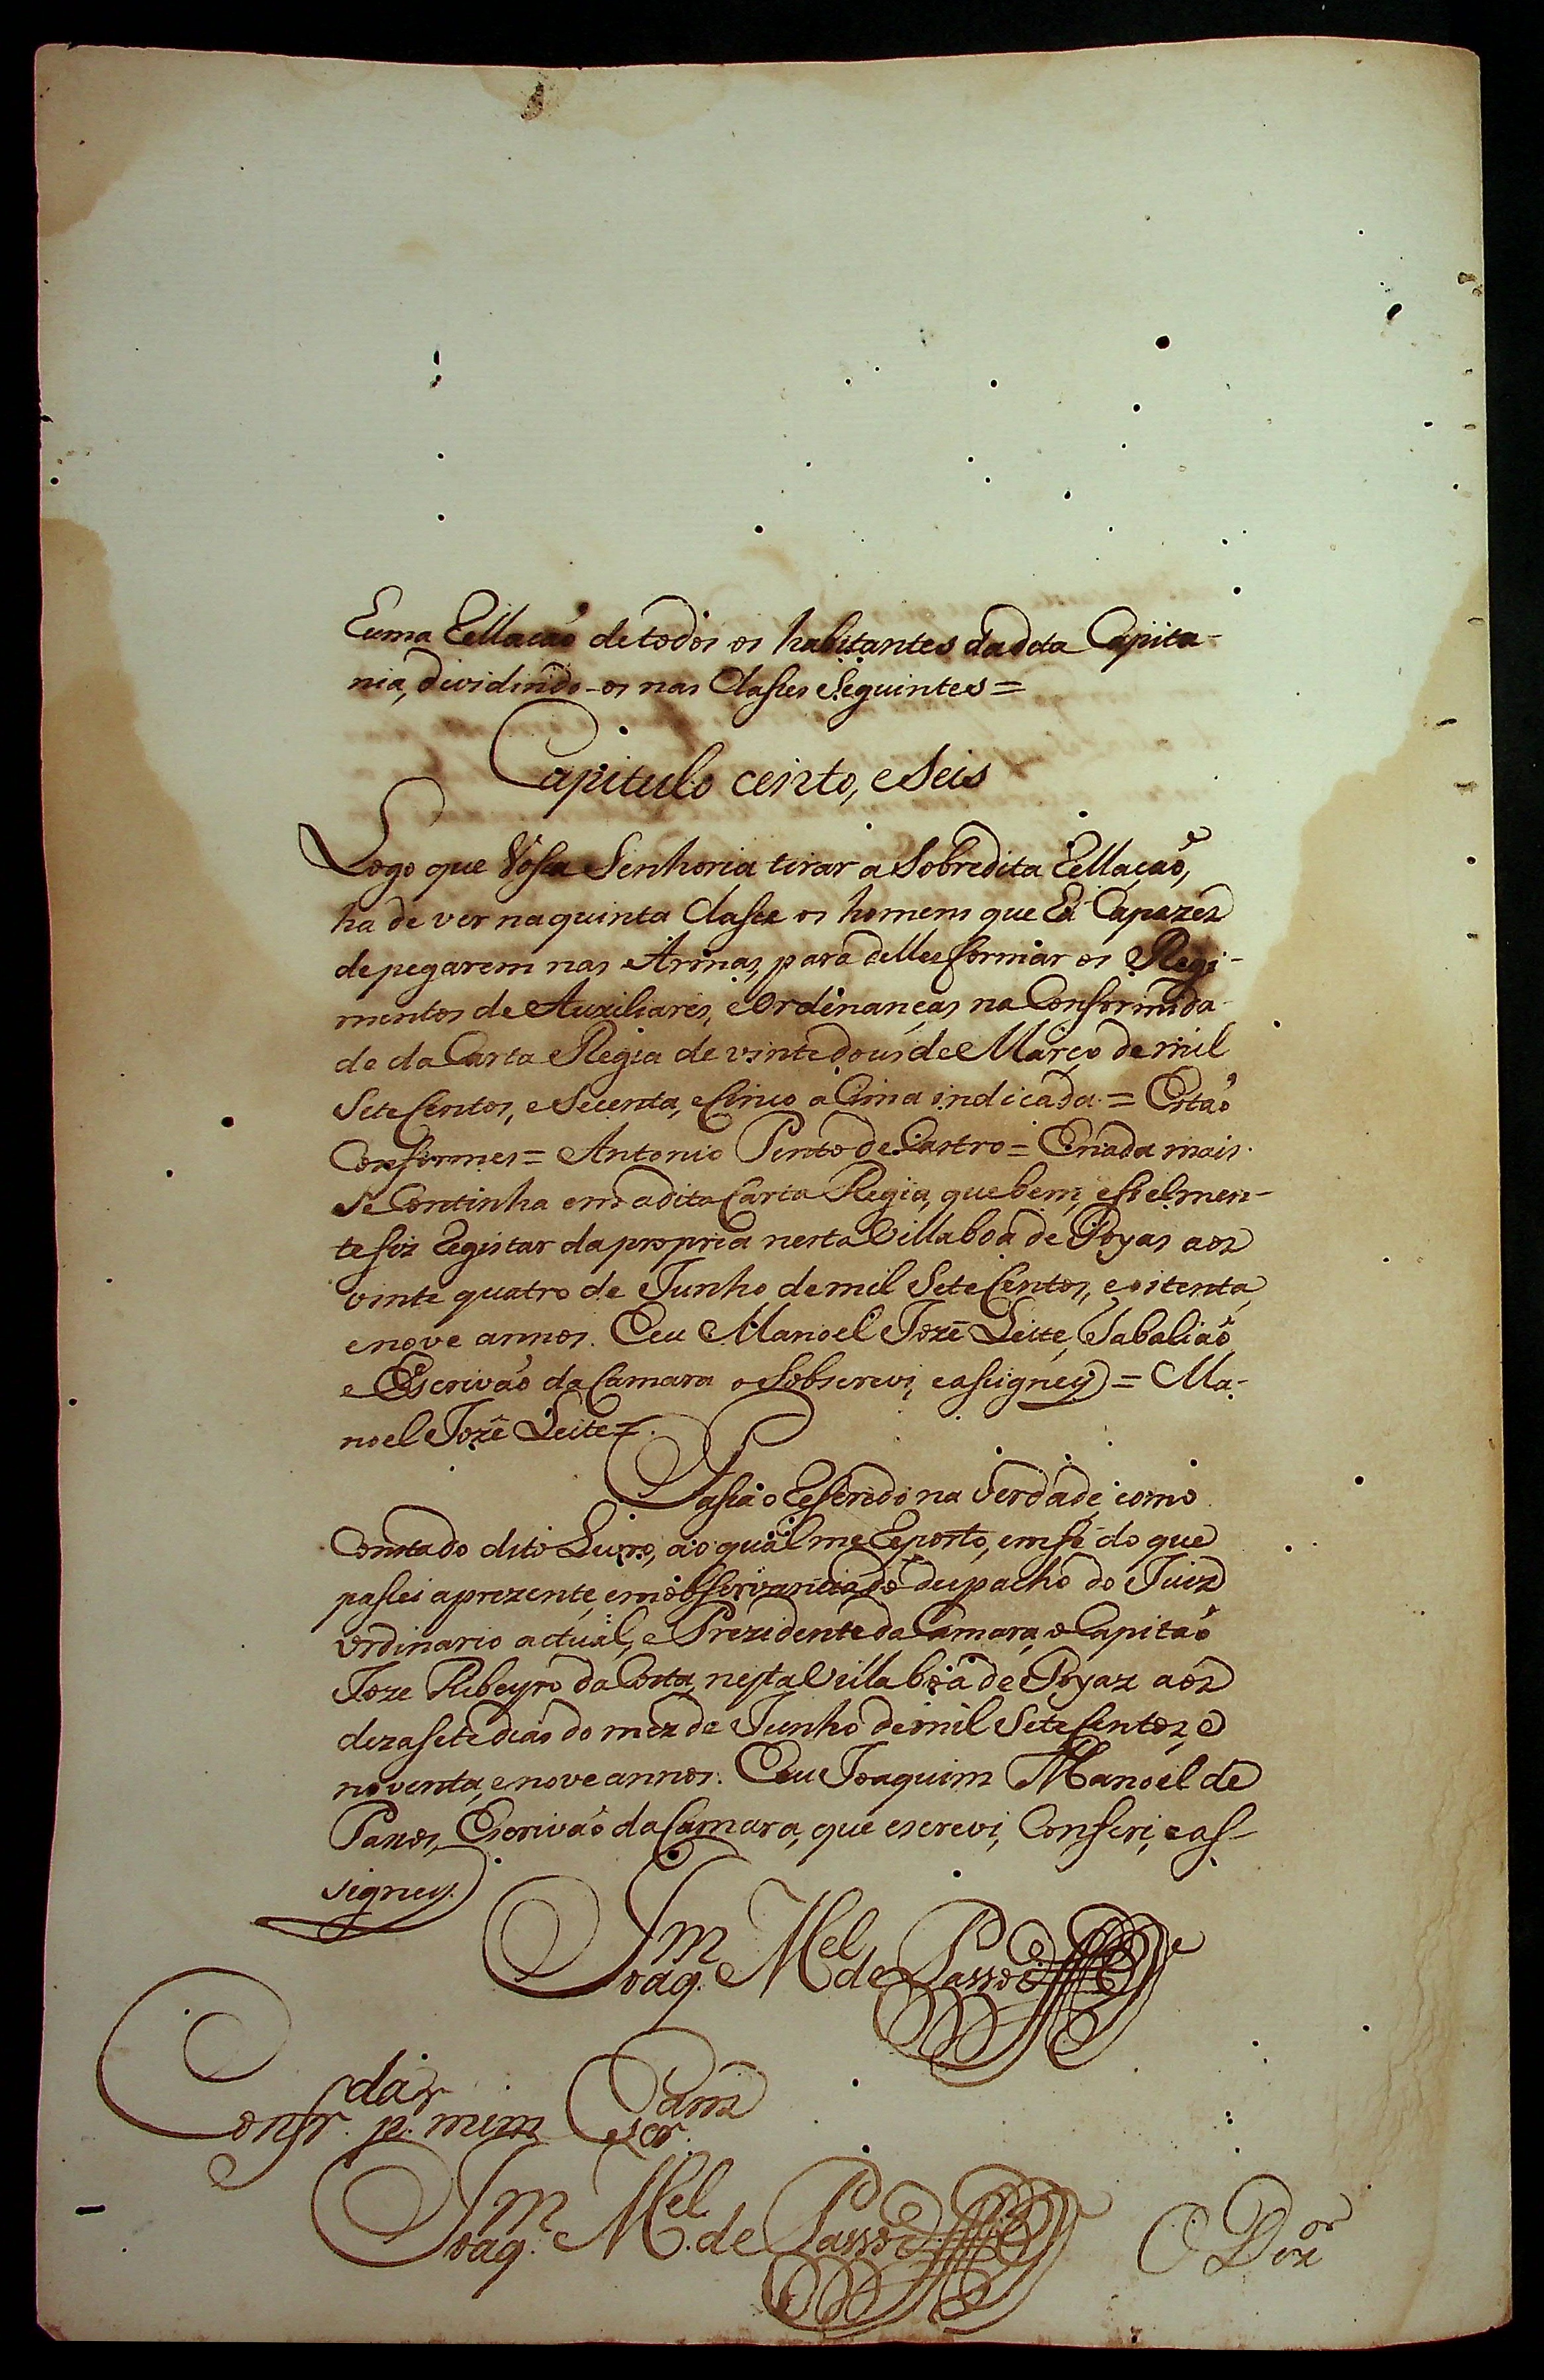 Euma Rellação de todos os habitantes da dita Capita-
nia, dividindo-os nas Classes Seguintes =
Capitulo cento, e Seis
Logo que Vossa Senhoria tirar a Sobredita Rellação,
ha de ver na quinta Classe os homens que há Capazes
de pegarem nas Armas, para delles formar os Regi-
mentos de Auxiliares, e Ordenanças na Conformida-
de da Carta Regia de vinte dous de Março de mil
Sete Centos, e Secenta, e Cinco a Cima indicada = Estão
Conformes = Antonio Pinto de Castro = E nada mais
Se Continha em a dita Carta Regia, que bem, e fielmen-
te fiz Registar da propria nesta Villa boa de Goyas aos
vinte quatro de Junho de mil Sete Centos, e oitenta,
e nove annos. Eeu Manoel Jozé Leite, Tabalião,
e Escrivão da Camara o Sobscrevi, e assigney = Ma-
noel Jozé Leite =.
Passa o Refferido na verdade, como
Consta do dito Livro, ao qual me Reporto, em fé do que
passei a prezente, em observancia do despacho do Juiz
ordinario actual, e Prezidente da Camara, o Capitão
Joze Ribeyro da Costa, nesta Villa boa de Goyaz aos
dezasete dias do mez de Junho de mil Sete Centos, e
noventa, e nove annos. Eeu Joaquim Manoel de
Passos, Escrivão da Camara, que escrevi, Conferi, e as-
signey.
Joaq.m M.el de Passos
Conf.da p.r mim
Joaq.m M.el de Passos